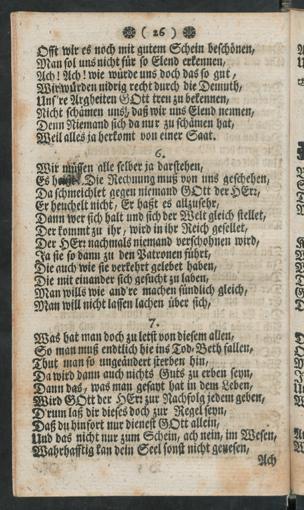 ( 26 )
Offt wir es noch mit gutem Schein beschönen,
Man sol uns nicht für so Elend erkennen,
Ach! Ach! wie würde uns doch das so gut,
Wir würden nidrig recht durch die Demuth,
Uns're Argheiten GOtt treu zu bekennen,
Nicht schämen uns, daß wir uns Elend nennen,
Denn Niemand sich da nur zu schämen hat,
Weil alles ja herkomt von einer Saat.
6.
Wir müssen alle selber ja darstehen,
Es Die Rechnung muß von uns geschehen,
Da schmeichlet gegen niemand GOtt der HErr,
Er heuchelt nicht, Er haßt es allzusehr,
Dann wer sich halt und sich der Welt gleich stellet,
Der kommt zu ihr, wird in ihr Reich gesellet,
Der HErr nachmals niemand verschohnen wird,
Ja sie so dann zu den Patronen führt,
Die auch wie sie verkehrt gelebet haben,
Die mit einander sich gesucht zu laben,
Man wills wie and're machen sündlich gleich,
Man will nicht lassen lachen über sich,
7.
Was hat man doch zu letst von diesem allen,
So man muß endtlich hie ins Tod-Beth fallen,
Thut man so ungeändert sterben hin,
Da wird dann auch nichts Guts zu erben seyn,
Dann das, was man gesäyt hat in dem Leben,
Wird GOtt der HErr zur Nachfolg jedem geben,
D'rum laß dir dieses doch zur Regel seyn,
Daß du hinfort nur dienest GOtt allein,
Und das nicht nur zum Schein, ach nein, im Wesen,
Wahrhafftig kan dein Seel sonst nicht genesen,
Ach